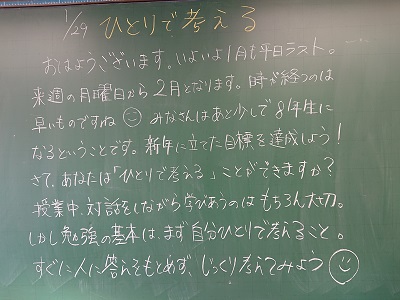 1/29 ひとりで考える
おはようございます。いよいよ1月も平日ラスト。
来週の月曜日から2月となります。時が経つのは
早いものですね みなさんはあと少しで8年生に
なるということです。新年に立てた目標を達成しよう!
さて、あなたは「ひとりで考える」ことができますか?
授業中、対話をしながら学びあうのはもちろん大切。
しかし勉強の基本は、まず自分ひとりで考えること。
すぐに人に答えをもとめず、じっくり考えてみよう